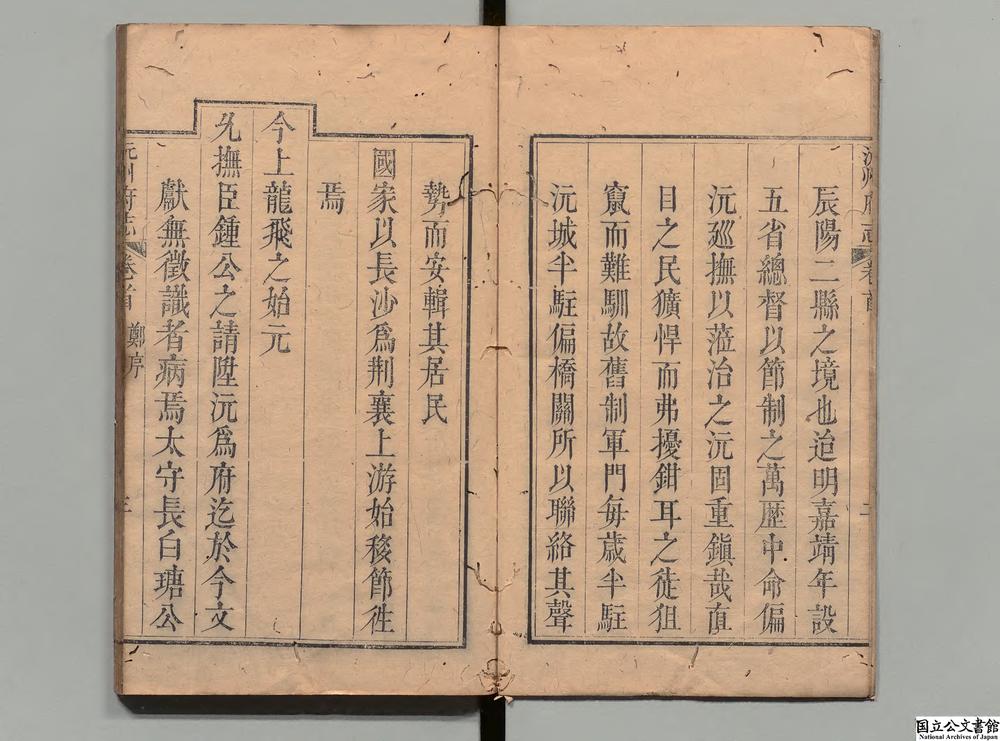 辰陽二縣之境也迨明嘉靖年設
五省總督以節制之萬歷中命偏
沅廵撫以蒞治之沅固重鎮哉直
目之民獷悍而弗擾鉗耳之徒狙
竄而難馴故舊制軍門每歲半駐
沅城半駐偏橋關所以聯絡其聲
勢而安輯其居民
國家以長沙爲荆襄上游始移節徃
焉
今上龍飛之始元
允撫臣鍾公之請陞沅爲府迄於今文
獻無徵識者病焉太守長白瑭公
沅州府志 卷首 鄭序 三
国立公文書館
National Archives of Japan